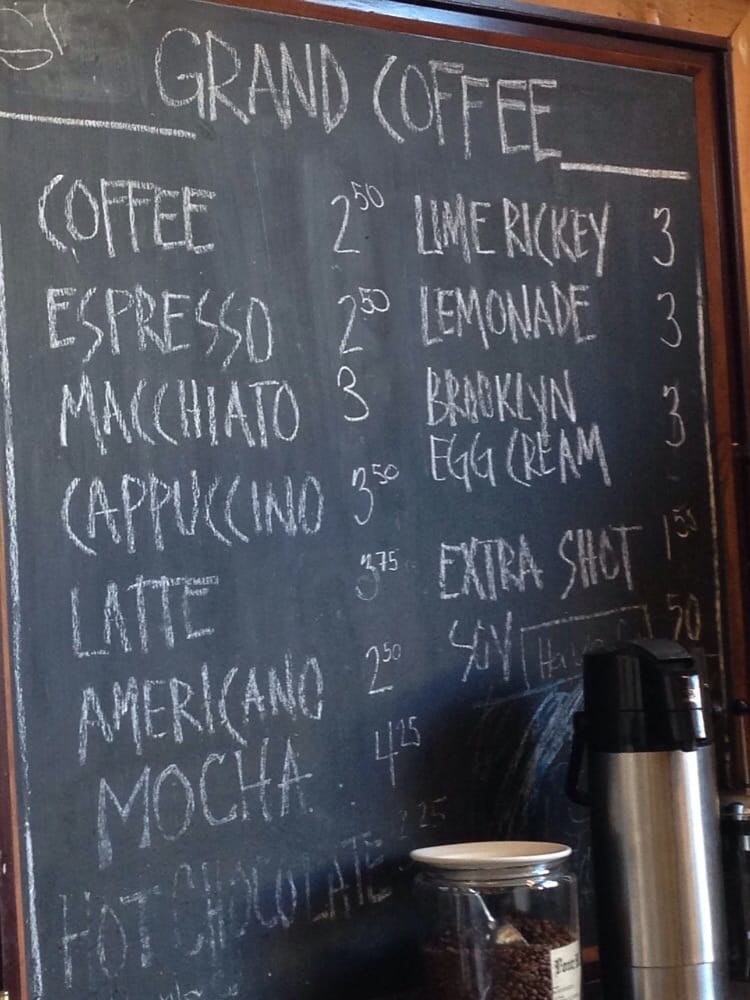 GRAND COFFEE
COFFEE 2 50
ESPRESSO 2 50
MACCHIATO 3
CAPPUCCINO 3 50
LATTE 3 75
AMERICANO 2 50
MOCHA 4 25
HOT CHOCOLATE 25
LIME RICKEY 3
LEMONADE 3
BROOKLYN
EGG CREAM 3
EXTRA SHOT
SOY 50